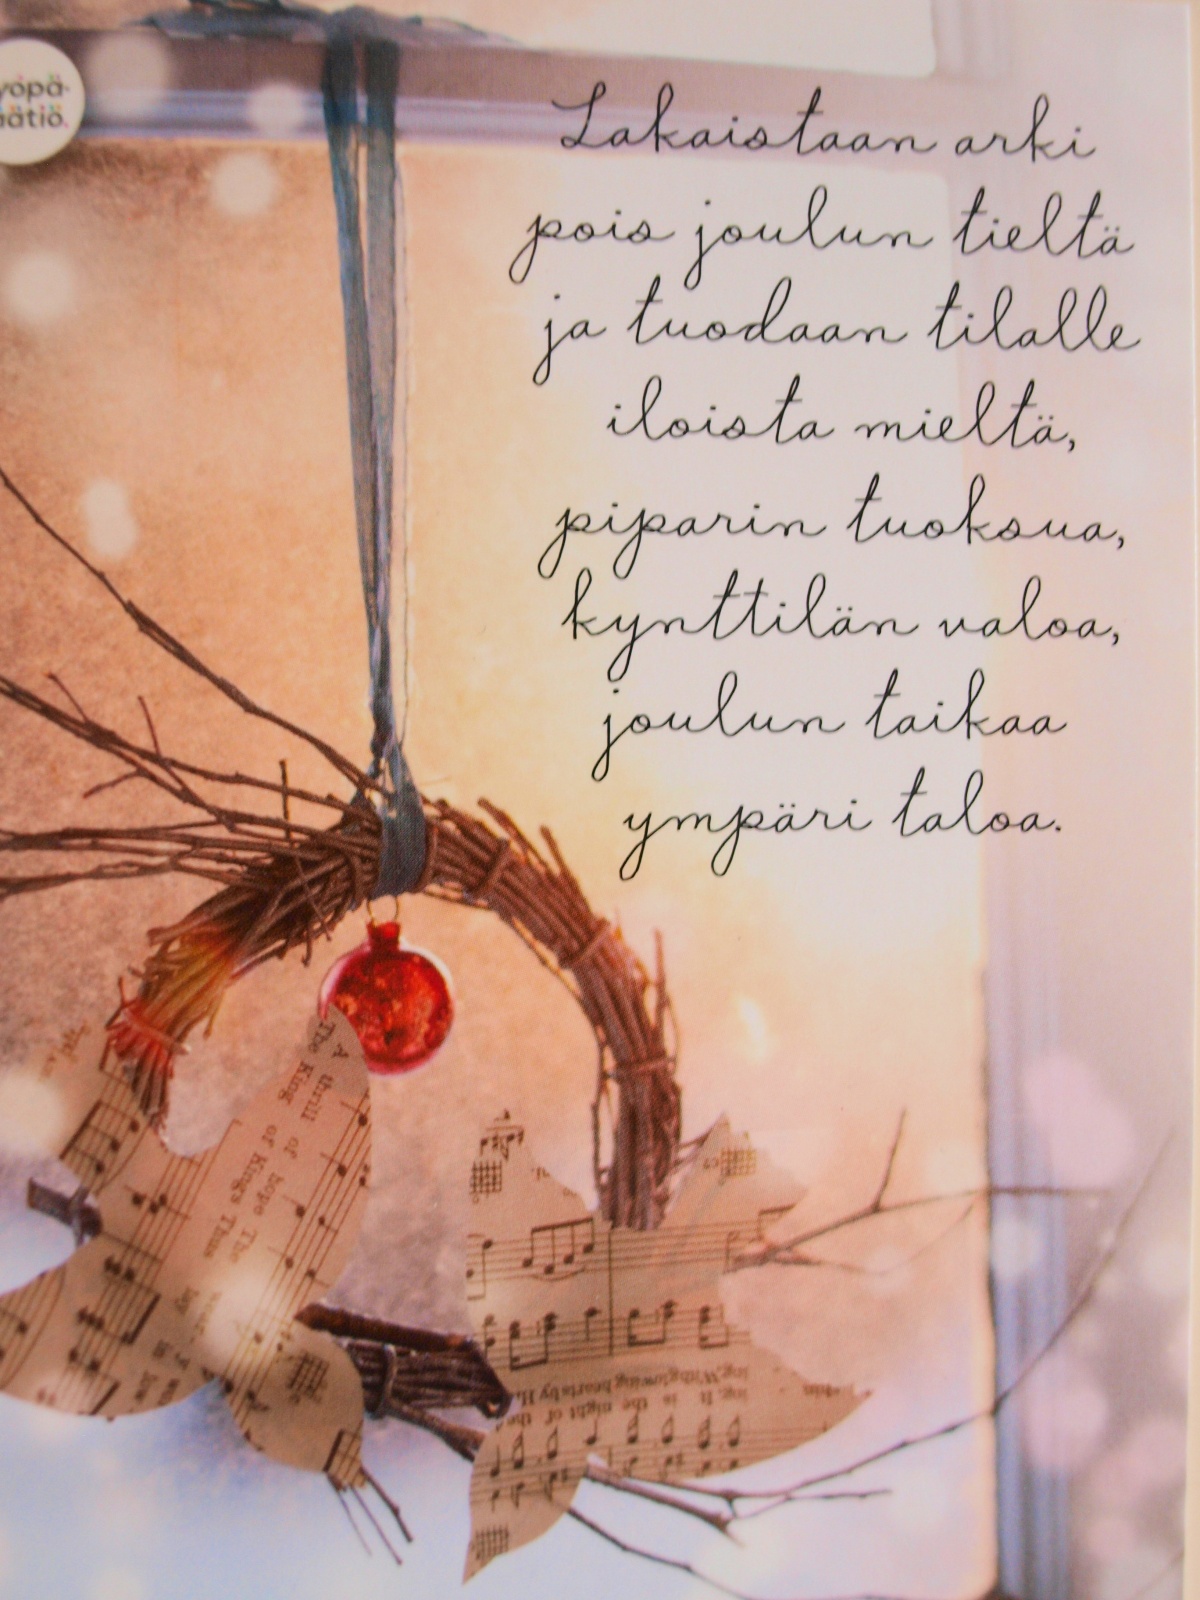 Lakaistaan arki
pois joulun tieltä
ja tuodaan tilalle
iloista mieltä,
piparin tuoksua,
kynttilän valoa,
joulun taikaa
ympäri taloa.
A thrill of hope The
The King of Kings Thus
ing. With glowing hearts by H
ing, It is the night of the